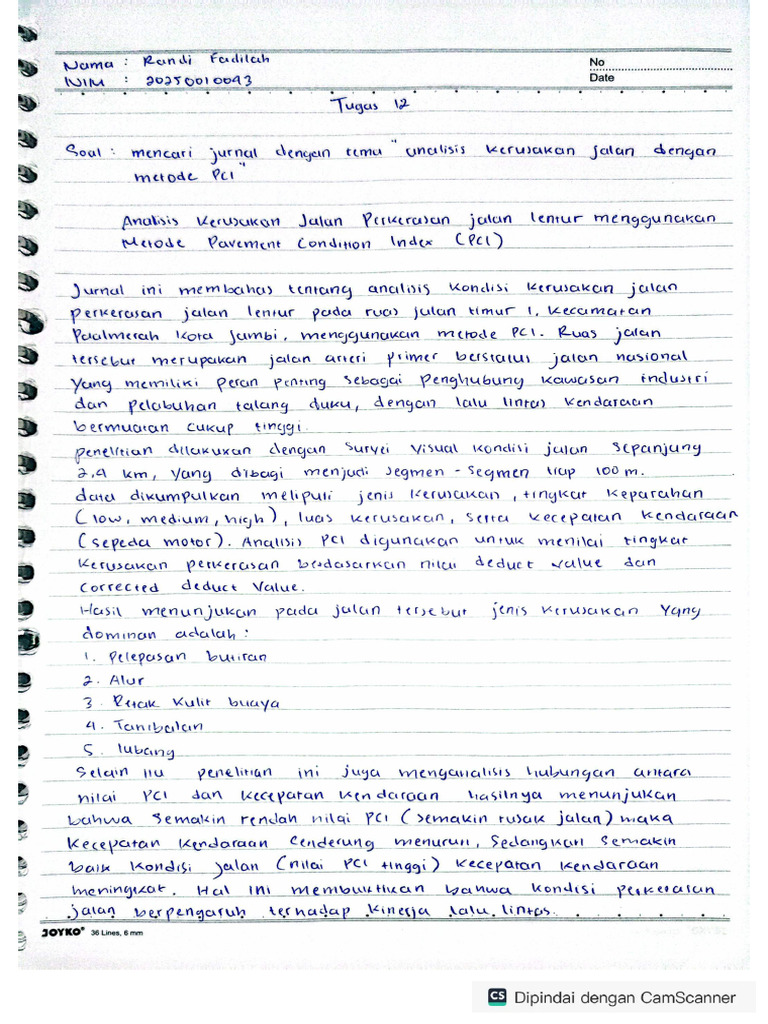 Nama : Randi Fadilah
NIM : 20250010093
No
Date
Tugas 12
Soal : mencari jurnal dengan tema "analisis kerusakan jalan dengan
metode PCI"
Analisis Kerusakan Jalan Perkerasan jalan lentur menggunakan
Metode Pavement Condition Index (PCI)
Jurnal ini membahas tentang analisis kondisi kerusakan jalan
perkerasan jalan lentur pada ruas jalan timur 1, Kecamatan
Paalmerah Kota Jambi, menggunakan metode PCI. Ruas jalan
tersebut merupakan jalan arteri primer berstatus jalan nasional
yang memiliki peran penting sebagai penghubung kawasan industri
dan pelabuhan talang duku, dengan lalu lintas kendaraan
bermuatan cukup tinggi.
penelitian dilakukan dengan survei visual kondisi jalan sepanjang
2,4 km, yang dibagi menjadi segmen - segmen tiap 100 m.
data dikumpulkan meliputi jenis kerusakan, tingkat keparahan
(low, medium, high), luas kerusakan, serta kecepatan kendaraan
(sepeda motor). Analisis PCI digunakan untuk menilai tingkat
kerusakan perkerasan berdasarkan nilai deduct value dan
corrected deduct value.
Hasil menunjukan pada jalan tersebut jenis kerusakan yang
dominan adalah :
1. Pelepasan butiran
2. Alur
3. Retak kulit buaya
4. Tambalan
5. lubang
Selain itu penelitian ini juga menganalisis hubungan antara
nilai PCI dan kecepatan kendaraan hasilnya menunjukan
bahwa semakin rendah nilai PCI (semakin rusak jalan) maka
kecepatan kendaraan cenderung menurun, sedangkan semakin
baik kondisi jalan (nilai PCI tinggi) kecepatan kendaraan
meningkat. Hal ini membuktikan bahwa kondisi perkerasan
jalan berpengaruh terhadap kinerja lalu lintas.
JOYKO® 36 Lines, 6 mm
CS Dipindai dengan CamScanner